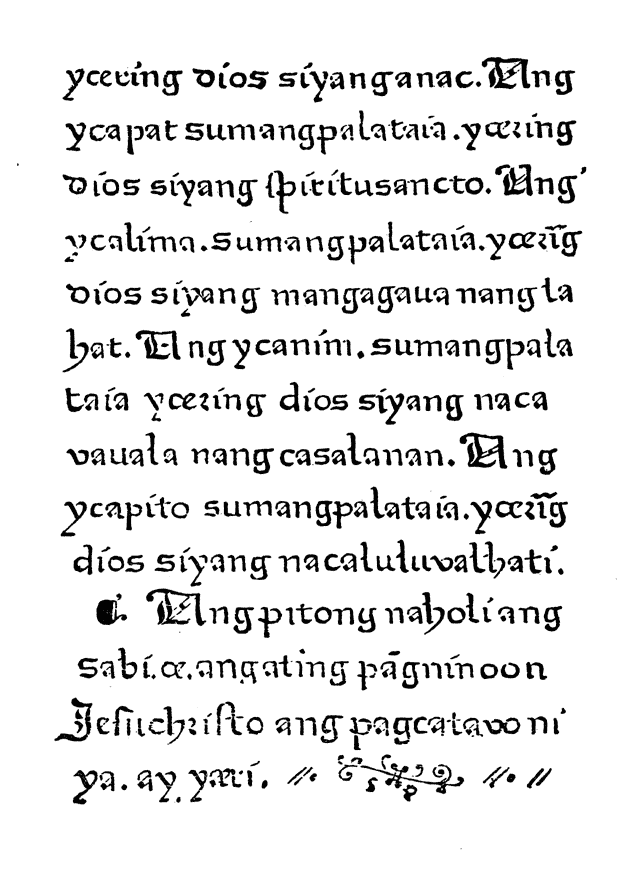 ycœting dios siyang anac. Ang
ycapat sumangpalataia. ycœring
dios siyang spiritusancto. Ang
ycalima. Sumangpalataia. ycœrīg
dios siyang mangagaua nang la
hat. Ang ycanim. sumangpala
taia ycœring dios siyang naca
vauala nang casalanan. Ang
ycapito sumangpalataia. ycœrīg
dios siyang nacaluluvalhati.
¶. Ang pitong naholi ang
sabi. œ. ang ating pāgninoon
Jesuchristo ang pagcatavo ni
ya. ay, yari.